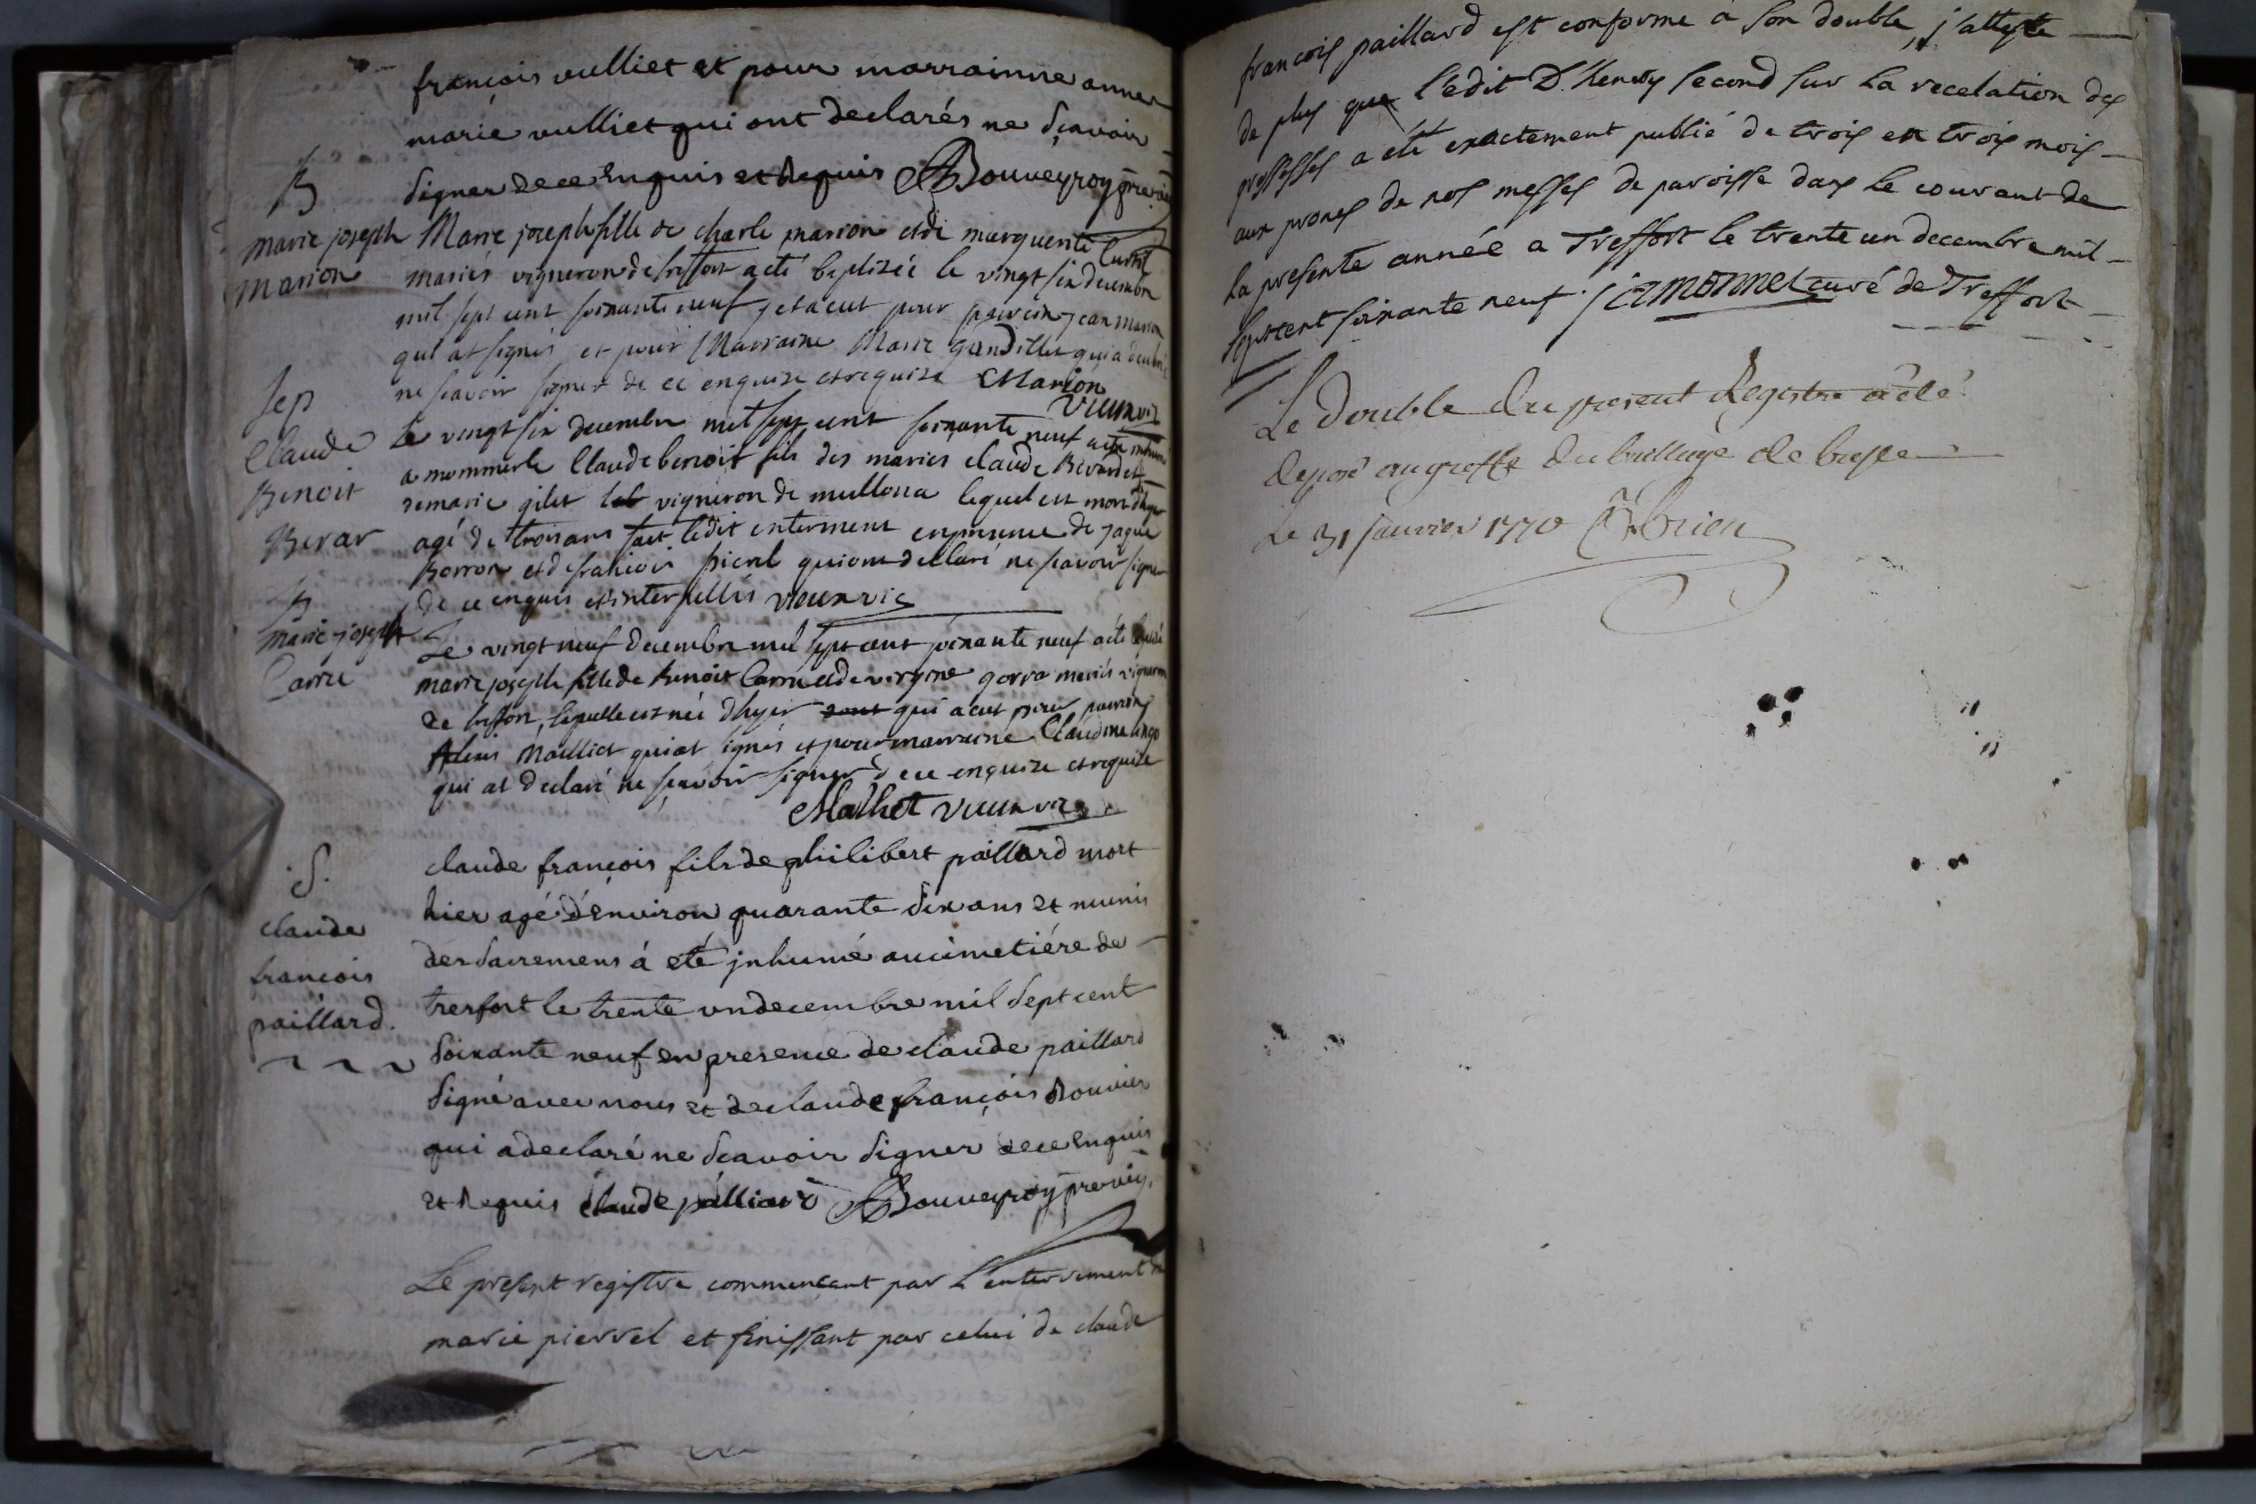 françois vulliet et pour marrainne anne
marie vulliet qui ont declarés ne sçavoir
B
signer de ce enquis et Requis Bouveyroy
marie joseph
marion
Marie joseph fille de charle marion et de marguerite
mariés vigneron de treffort a eté baptisée le vingt six decembre
mil sept cent soixante neuf et a eut pour parrein jean marion
qui at signés et pour Marraine Marie
ne scavoir signer de ce enquize et requize Marion
Vieux vic
Sep
Claude
Benoit
Berar
Le vingt six decembre mil sept cent soixante neuf
a mommerle Claude benoit fils des maries claude
marie gilet vigneron de mullona lequel est mort d'hyer
agé de trois ans fait ledit enterment en presence de jaque
Borron et de francois qui ont declaré ne scavoir signer
de ce enquis et interpellés vieux vic
B
marie joseph
Carru
Le vingt neuf decembre mil sept cent soixante neuf a eté
marie joseph fille de Benoit Carru et de virgine gorra mariés vigneron
de laquelle est née d'hyer qui a eut pour parrein
Alexis Malliet qui at signés et pour marraine Claudine
qui at declaré ne scavoir signer de ce enquize et requize
Malhet Vieux vic
S.
claude
francois
paillard.
claude françois fils de philibert paillard mort
hier agé d'environ quarante six ans et munis
des sacremens á eté jnhumé au cimetiére de
tresfort le trente un decembre mil sept cent
soixante neuf en presence de claude paillard
signé avec nous et de claude françois Bouvier
qui a declaré ne sçavoir signer de ce enquis
et Requis claude palliard Bouveyroy
Le present registre commençant par l'enterrement de
marie pierrel et finissant par celui de claude
francois paillard est conforme a son double, j'atteste
de plus que l'edit D'Henry second sur la recelation des
grossesses a été exactement publié de trois en trois mois
aux prones de nos messes de paroisse dans le courant de
la presente année a Treffort le trente un decembre mil
sept cent soixante neuf. monnet curé de Treffort
Le Double du present Registre a eté
deposé au greffe du bailliage de bresse
Le 31 janvier 1770 Brien